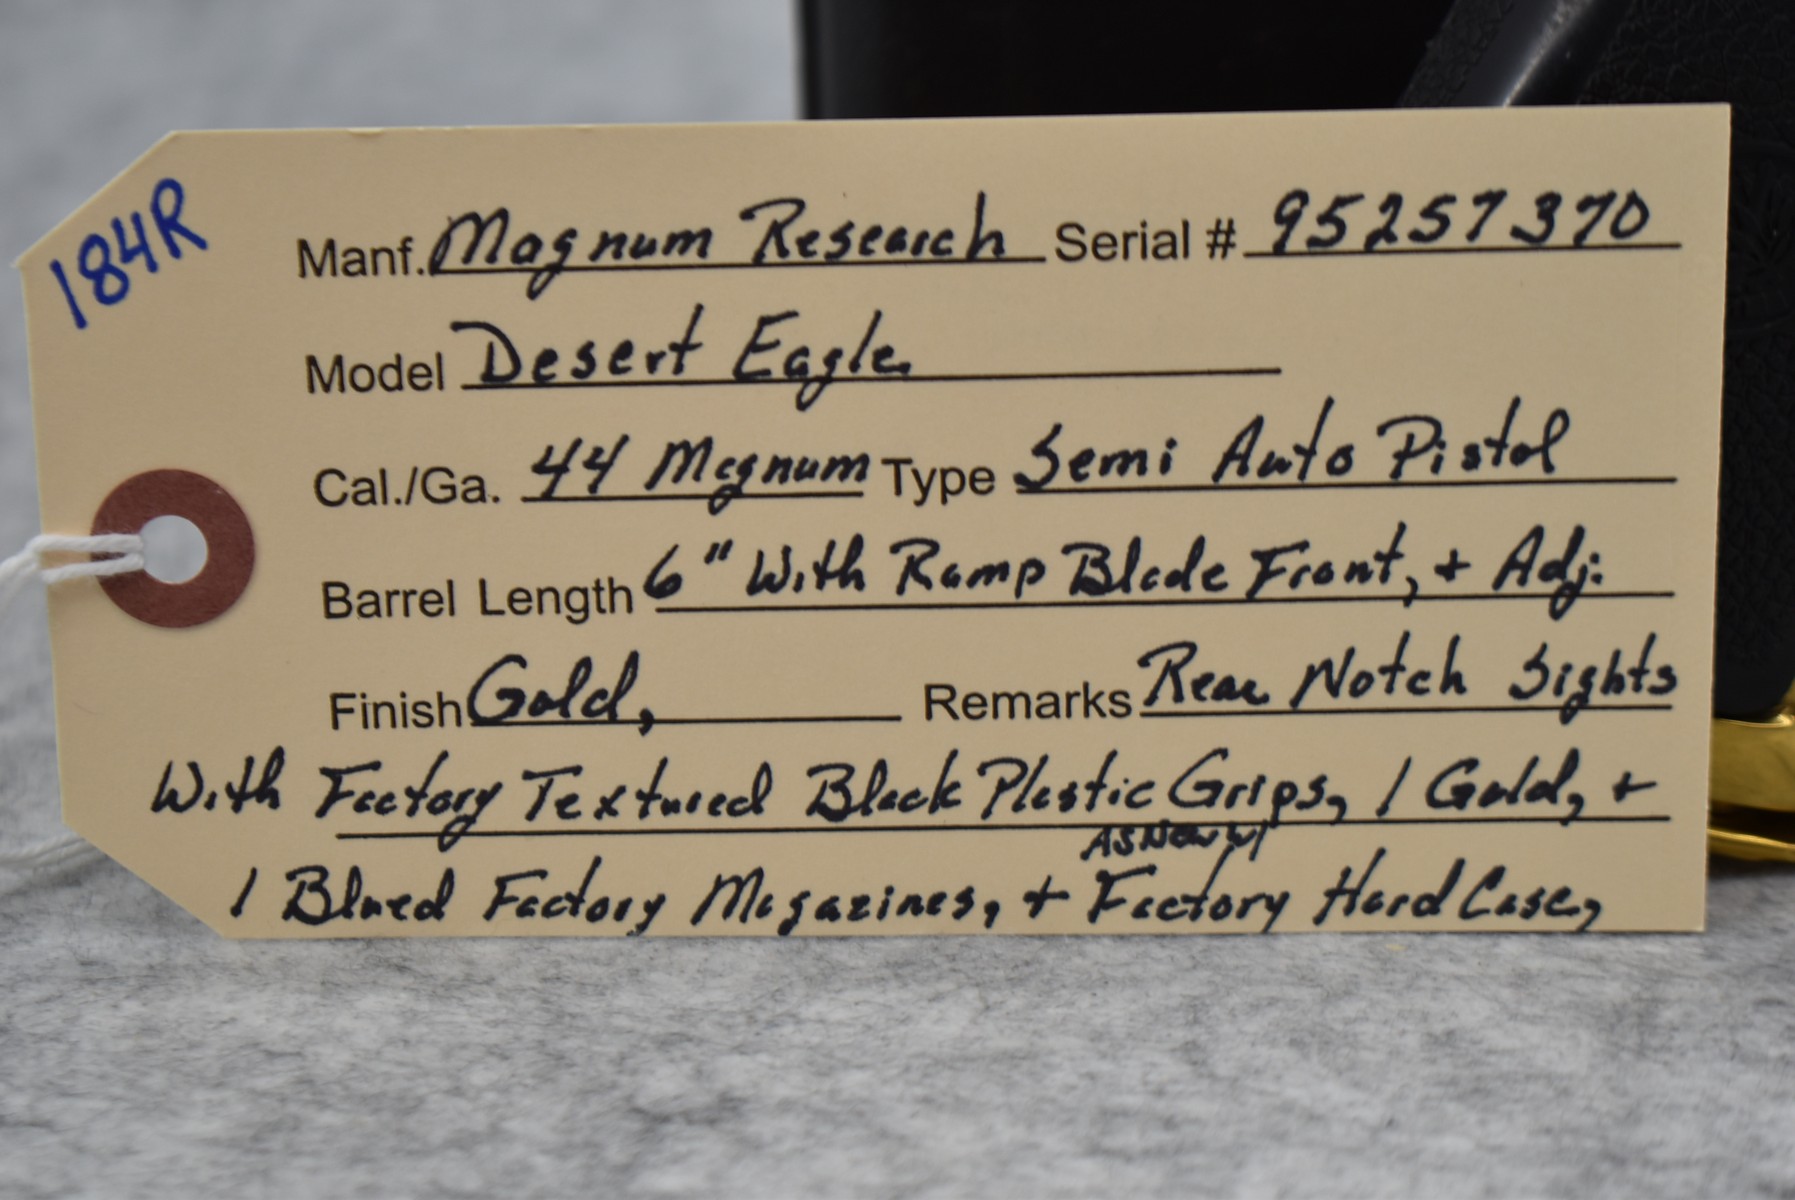 184R
Manf. Magnum Research Serial # 95257370
Model Desert Eagle
Cal./Ga. 44 Magnum Type Semi Auto Pistol
Barrel Length 6" With Ramp Blade Front, + Adj.
Finish Gold, Remarks Rear Notch Sights
With Factory Textured Black Plastic Grips, 1 Gold, +
AS New W/
1 Blued Factory Magazines, + Factory Hard Case,